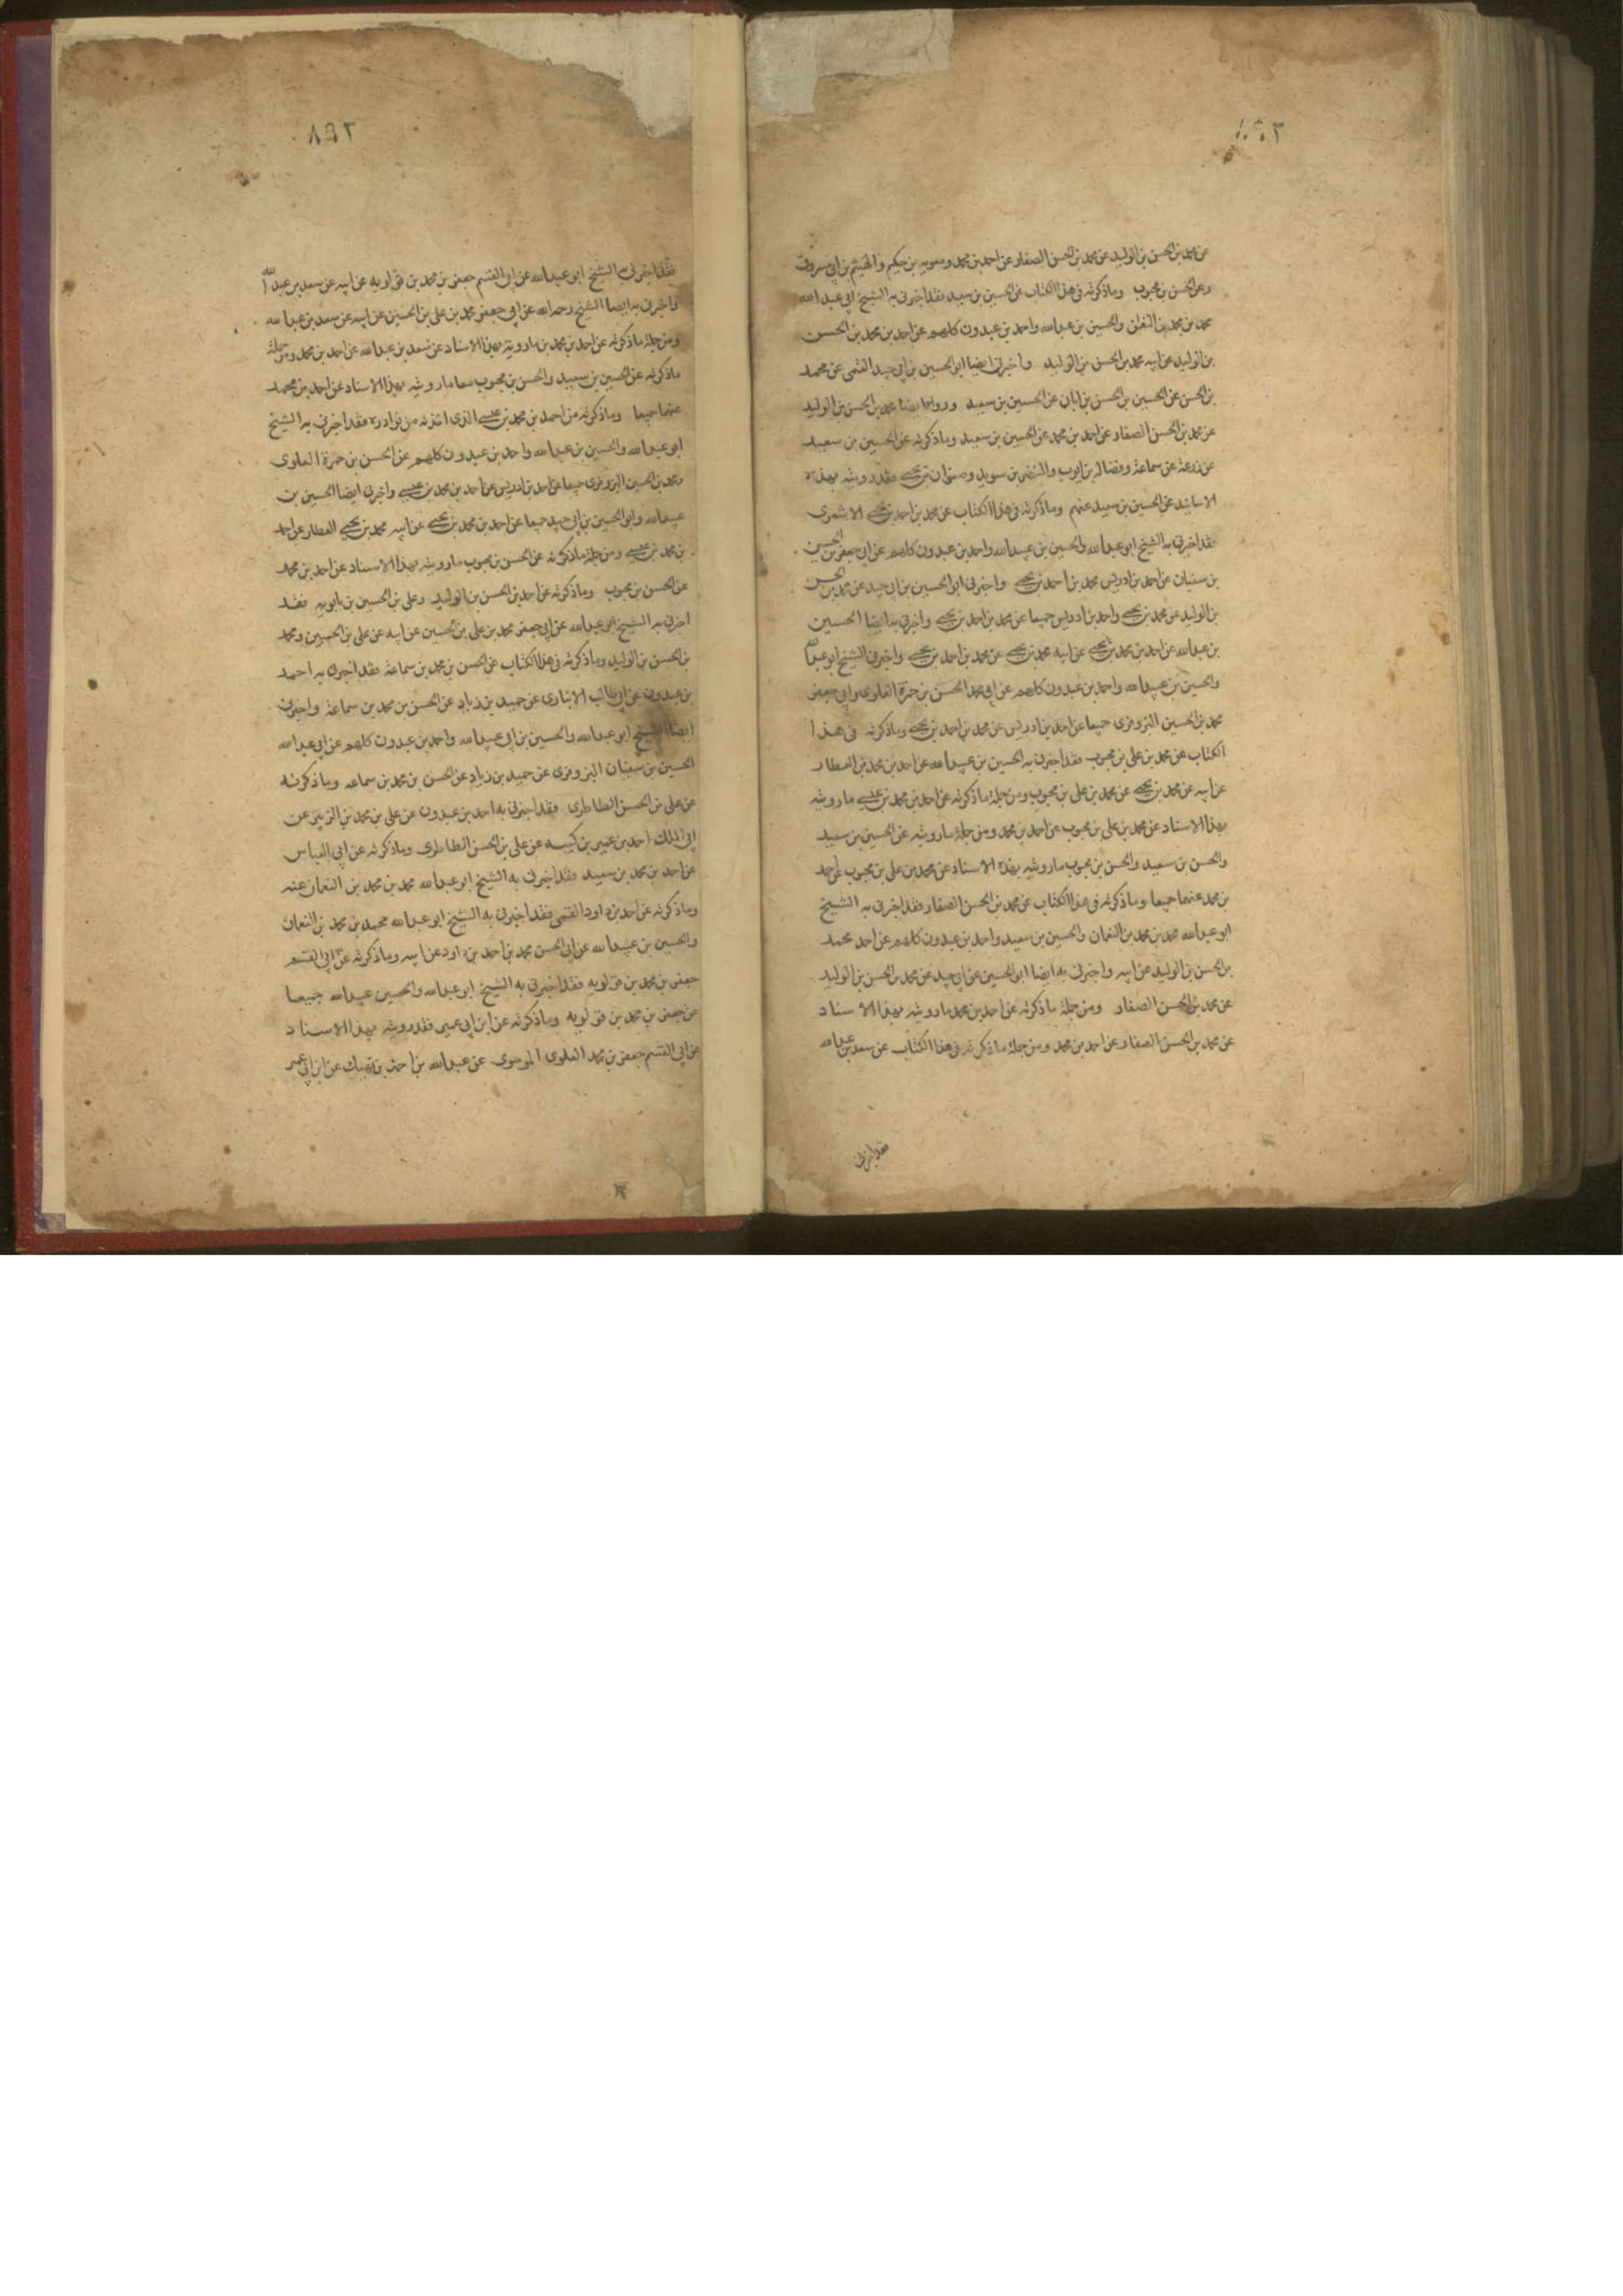 عن محمد بن الحسن بن الوليد عن محمد بن الحسن الصفار عن احمد بن محمد ومعويه بن حكيم والهيثم بن ابي مسروق
وعن الحسن بن محبوب وما ذكرته في هذا الكتاب عن الحسين بن سعيد فقد اخبرني به الشيخ ابي عبدالله
محمد بن محمد بن النعمن والحسين بن عبدالله واحمد بن عبدون كلهم عن احمد بن محمد بن الحسن
بن الوليد عن ابيه محمد بن الحسن بن الوليد واخبرني ايضا ابو الحسين بن ابي جيد القمي عن محمد
بن الحسن عن الحسين بن الحسن بن ابان عن الحسين بن سعيد ورواه ايضا محمد بن الحسن بن الوليد
عن محمد بن الحسن الصفار عن احمد بن محمد عن الحسين بن سعيد وما ذكرته عن الحسين بن سعيد
عن زرعة عن سماعة وفضاله بن ايوب والنضر بن سويد وصفوان بن يحيى فقد رويته بهذه
الاسانيد عن الحسين بن سعيد عنهم وما ذكرته في هذا الكتاب عن محمد بن احمد بن يحيى الاشعرى
فقد اخبرني به الشيخ ابو عبدالله والحسين بن عبيدالله واحمد بن عبدون كلهم عن ابي جعفر بن الحسين
بن سفيان عن احمد بن ادريس محمد بن احمد بن يحيى واخبرني ابو الحسين بن ابي جيد عن محمد بن الحسن
بن الوليد عن محمد بن يحيى واحمد بن ادريس جميعا عن محمد بن احمد بن يحيى واخبرني به ايضا الحسين
بن عبدالله عن احمد بن محمد بن يحيى عن ابيه محمد بن يحيى عن محمد بن احمد بن يحيى واخبرني الشيخ ابو عبدالله
والحسين بن عبيدالله واحمد بن عبدون كلهم عن ابي محمد الحسن بن حمزة العلوى وابي جعفر
محمد بن الحسين البزوفرى جميعا عن احمد بن ادريس عن محمد بن احمد بن يحيى وما ذكرته في هذا
الكتاب عن محمد بن علي بن محبوب فقد اخبرني به الحسين بن عبيدالله عن احمد بن محمد بن العطار
عن ابيه عن محمد بن يحيى عن محمد بن علي بن محبوب ومن جملة ما ذكرته عن احمد بن محمد بن عيسى ما رويته
بهذا الاسناد عن محمد بن علي بن محبوب عن احمد بن محمد ومن جملة ما رويته عن الحسين بن سعيد
والحسن بن سعيد والحسن بن محبوب ما رويته بهذه الاسناد عن محمد بن علي بن محبوب عن احمد
بن محمد عنهما جميعا وما ذكرته في هذا الكتاب عن محمد بن الحسن الصفار فقد اخبرني به الشيخ
ابو عبدالله محمد بن محمد بن النعمان والحسين بن سعيد واحمد بن عبدون كلهم عن احمد محمد
بن الحسن بن الوليد عن ابيه واخبرني به ايضا ابو الحسين عن ابي جيد عن محمد بن الحسن بن الوليد
عن محمد بن الحسن الصفار ومن جملة ما ذكرته عن احمد بن محمد ما رويته بهذا الاسناد
عن محمد بن الحسن الصفار عن احمد بن محمد ومن جملة ما ذكرته في هذا الكتاب عن سعد بن عبدالله
فقد اخبرني
٢٩٨
فقد اخبرني به الشيخ ابو عبدالله عن ابي القسم جعفر بن محمد بن قولويه عن ابيه عن سعد بن عبدالله
واخبرني به ايضا الشيخ رحمه الله عن ابي جعفر محمد بن علي بن الحسين عن ابيه عن سعد بن عبدالله
ومن جملة ما ذكرته عن احمد بن محمد ما رويته بهذا الاسناد عن سعد بن عبدالله عن احمد بن محمد ومن جملة
ما ذكرته عن الحسين بن سعيد والحسن بن محبوب معا ما رويته بهذا الاسناد عن احمد بن محمد
عنهما جميعا وما ذكرته من احمد بن محمد بن عيسى الذى اخذته من نوادره فقد اخبرني به الشيخ
ابو عبدالله والحسين بن عبدالله واحمد بن عبدون كلهم عن الحسن بن حمزة العلوى
ومحمد بن الحسين البزوفرى جميعا عن احمد بن ادريس عن احمد بن محمد بن عيسى واخبرني ايضا الحسين بن
عبيدالله وابو الحسين بن ابي جيد جميعا عن احمد بن محمد بن يحيى عن ابيه محمد بن يحيى العطار عن احمد
بن محمد بن عيسى ومن جملة ما ذكرته عن الحسن بن محبوب ما رويته بهذا الاسناد عن احمد بن محمد
عن الحسن بن محبوب وما ذكرته عن احمد بن الحسن بن الوليد وعلى بن الحسين بن بابويه فقد
اخبرني به الشيخ ابو عبدالله عن ابي جعفر محمد بن علي بن الحسين عن ابيه عن علي بن الحسين ومحمد
بن الحسن بن الوليد وما ذكرته في هذا الكتاب عن الحسن بن محمد بن سماعة فقد اخبرني به احمد
بن عبدون عن ابي طالب الانبارى عن حميد بن زياد عن الحسن بن محمد بن سماعة واخبرني
ايضا الشيخ ابو عبدالله والحسين بن ابي عبيدالله واحمد بن عبدون كلهم عن ابي عبدالله
الحسين بن سفيان البزوفرى عن حميد بن زياد عن الحسن بن محمد بن سماعه وما ذكرته
عن علي بن الحسن الطاطرى فقد اخبرني به احمد بن عبدون عن علي بن محمد بن الزبير عن
ابي الملك احمد بن عمير بن كيسبه عن علي بن الحسن الطاطرى وما ذكرته عن ابي العباس
عن احمد بن محمد بن سعيد فقد اخبرني به الشيخ ابو عبدالله محمد بن محمد بن النعمان عنه
وما ذكرته عن احمد بن داود القمي فقد اخبرني به الشيخ ابو عبدالله محمد بن محمد بن النعمان
والحسين بن عبيدالله عن ابي الحسن محمد بن احمد بن داود عن ابيه وما ذكرته عن ابي القسم
جعفر بن محمد بن قولويه فقد اخبرني به الشيخ ابو عبدالله والحسين عبيدالله جميعا
عن جعفر بن محمد بن قولويه وما ذكرته عن ابن ابي عمير فقد رويته بهذا الاسناد
عن ابي القسم جعفر بن محمد العلوى الموسوى عن عبدالله بن احمد بن نهيك عن ابن ابي عمير